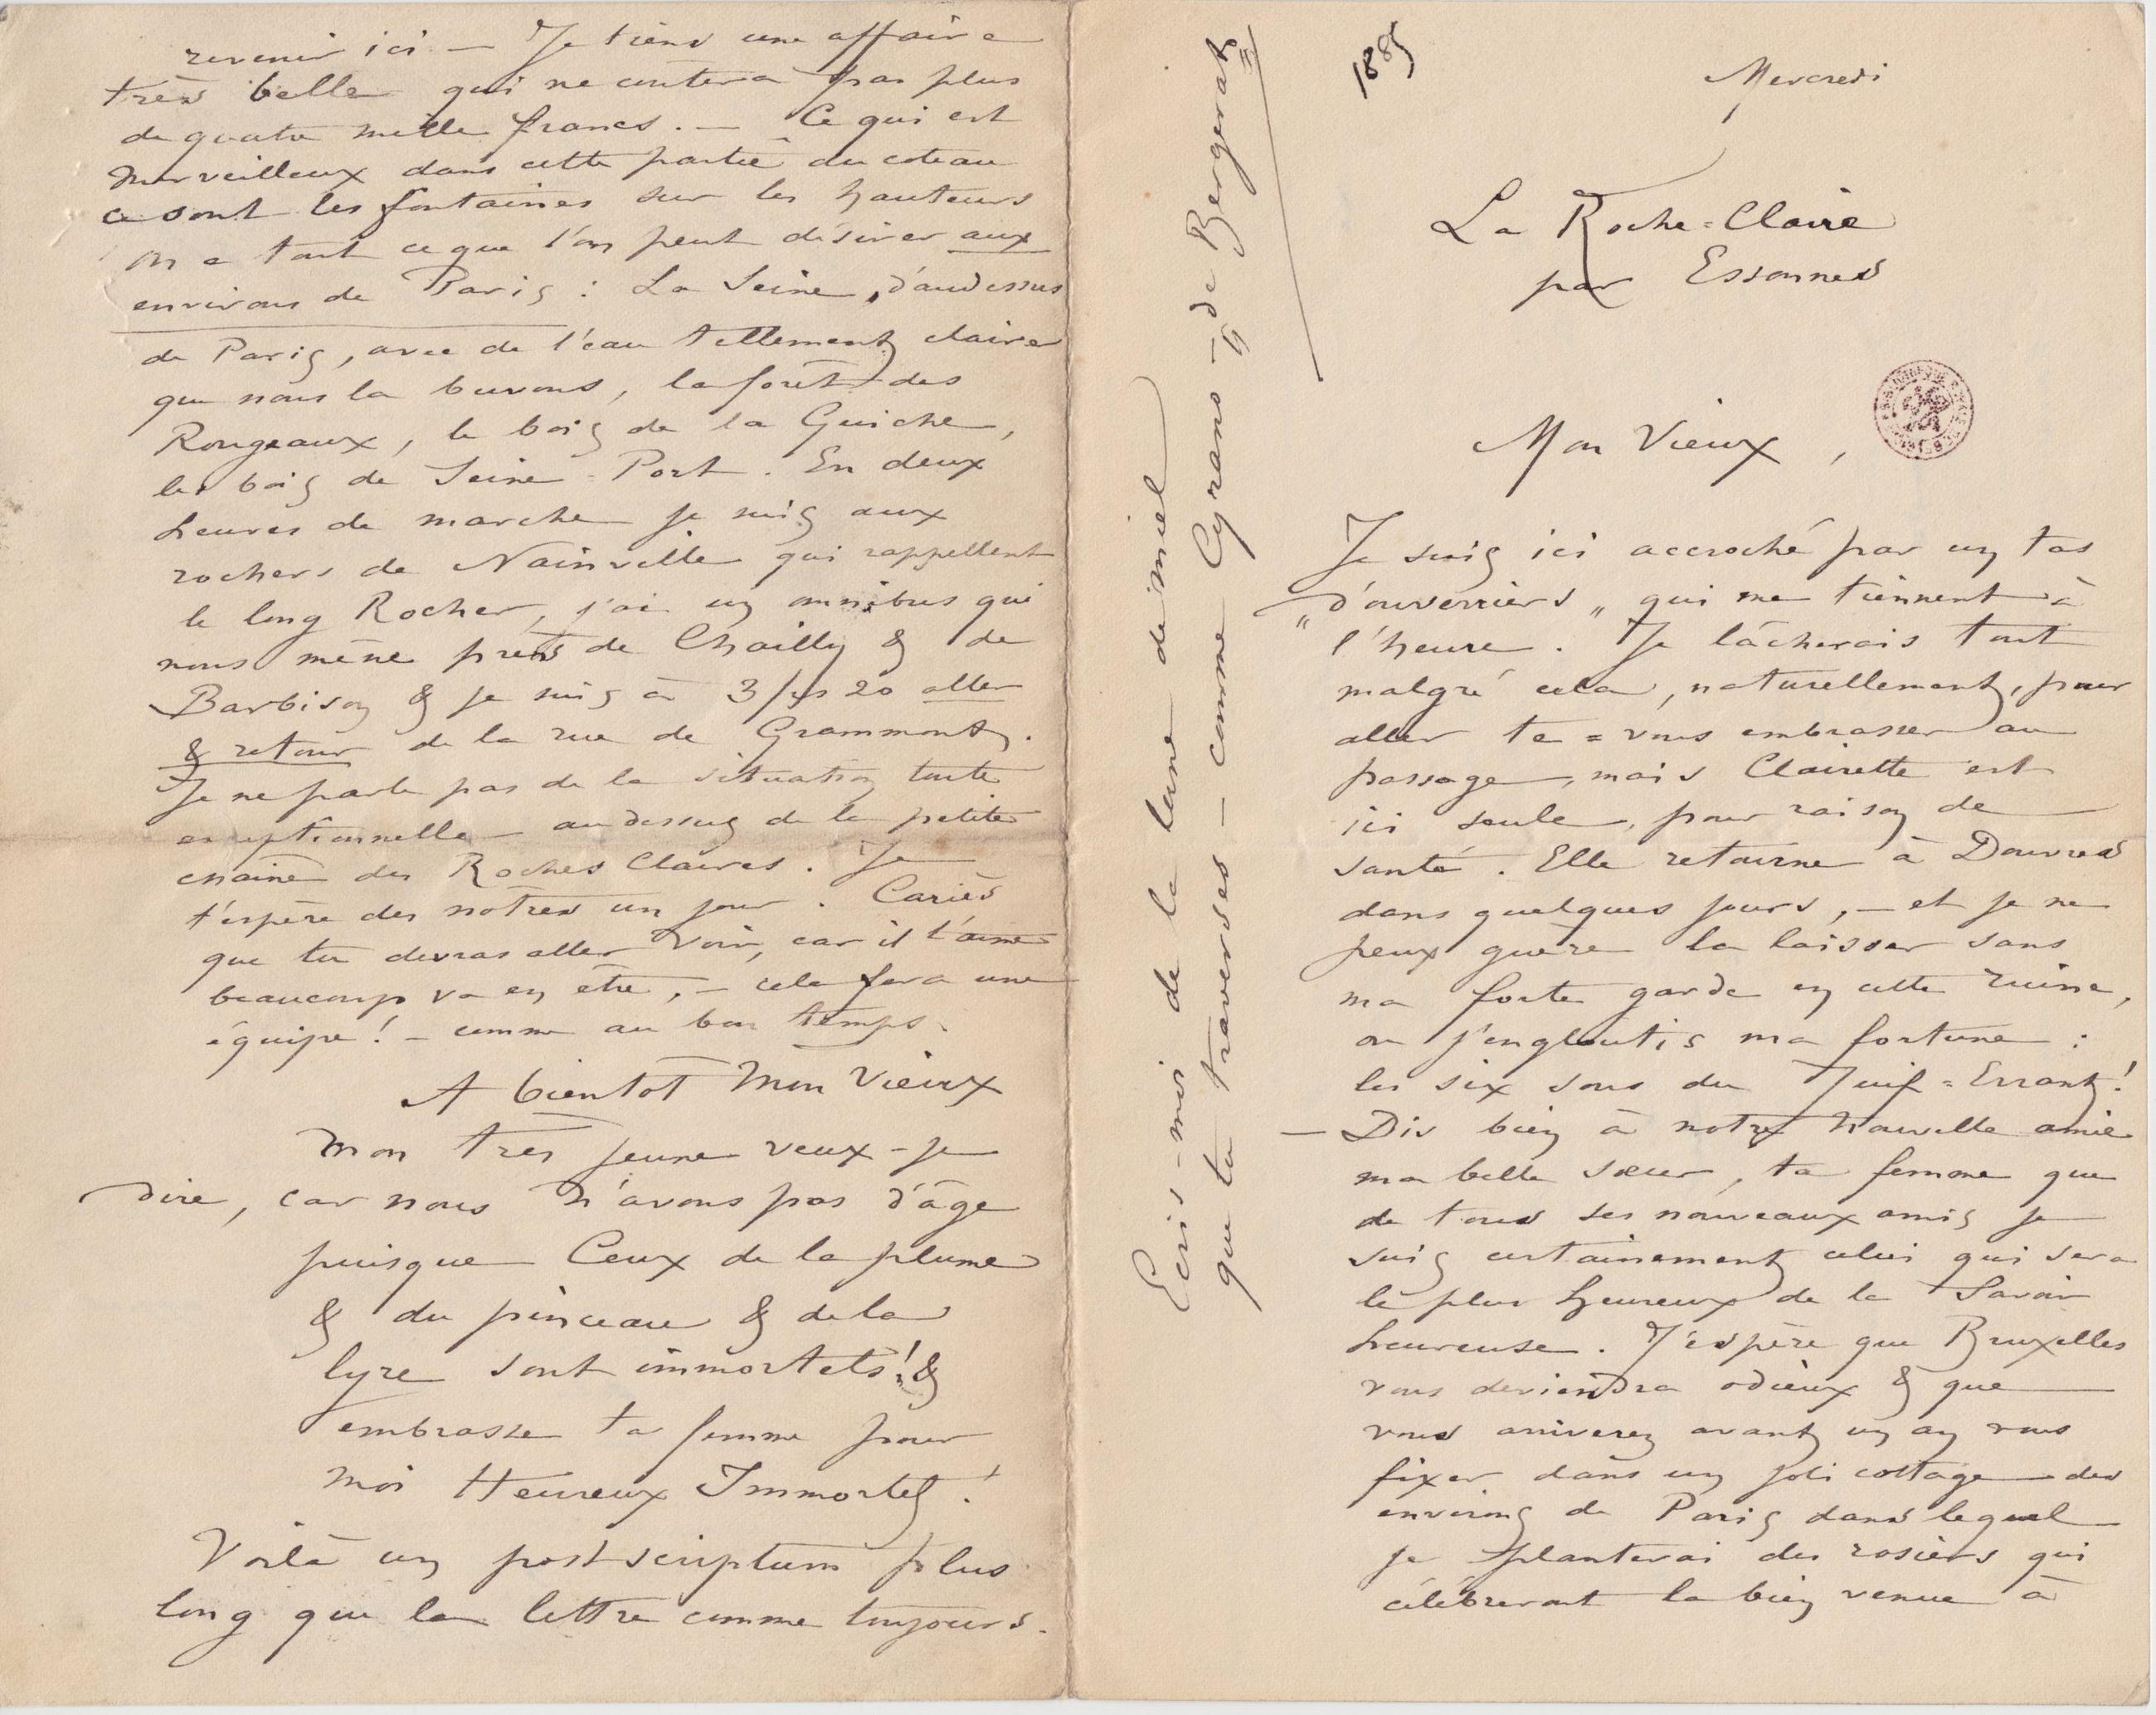 1885
Mercredi
La Roche=Claire
par Essonnes
Mon Vieux,
Je suis ici accroché par un tas
"d'ouverriers" qui me tiennent à
l'heure. Je lâcherais tout
malgré cela, naturellement, pour
aller te=vous embrasser au
passage, mais Clairette est
ici seule, pour raison de
santé. Elle retourne à Douvres
dans quelques jours, — et je ne
peux guère la laisser sans
ma forte garde en cette ruine,
où j'engloutis ma fortune :
les six sous du Juif=Errant!
— Dis bien à notre nouvelle amie
ma belle sœur, ta femme que
de tous ses nouveaux amis je
suis certainement celui qui sera
le plus heureux de la savoir
heureuse. J'espère que Bruxelles
vous deviendra odieux & que
vous arriverez avant un an vous
fixer dans un joli cottage des
environs de Paris dans lequel
je planterai des rosiers qui
célébreront la bien venue à
revenir ici — Je tiens une affaire
très belle qui ne coutera pas plus
de quatre mille francs. — Ce qui est
merveilleux dans cette partie du coteau
ce sont les fontaines sur les hauteurs
on a tout ce que l'on peut désirer aux
environs de Paris : La Seine, d'audessus
de Paris, avec de l'eau tellement claire
que nous la buvons, la forêt des
Rougeaux, le bois de la Guiche,
les bois de Seine=Port. En deux
heures de marche je suis aux
rochers de Nainville qui rappellent
le long Rocher, j'ai un omnibus qui
nous mène près de Chailly & de
Barbison & je suis à 3 frs 20 aller
& retour de la rue de Grammont.
Je ne parle pas de la situation toute
exceptionnelle — au dessus de la petite
chaîne des Roches Claires. Je
t'espère des notres un jour. Cariès
que tu devras aller voir, car il t'aime
beaucoup, va en être, — cela fera une
équipe! — comme au bon temps.
A bientot mon Vieux
mon très jeune veux-je
dire, car nous n'avons pas d'âge
puisque Ceux de la plume
& du pinceau & de la
lyre sont immortels! &
embrasse ta femme pour
moi Heureux Immortel!
Voilà un post scriptum plus
long que la lettre comme toujours.
Ecris-moi de la lune de miel
que tu traverses — comme Cyrano — "de Bergerat"